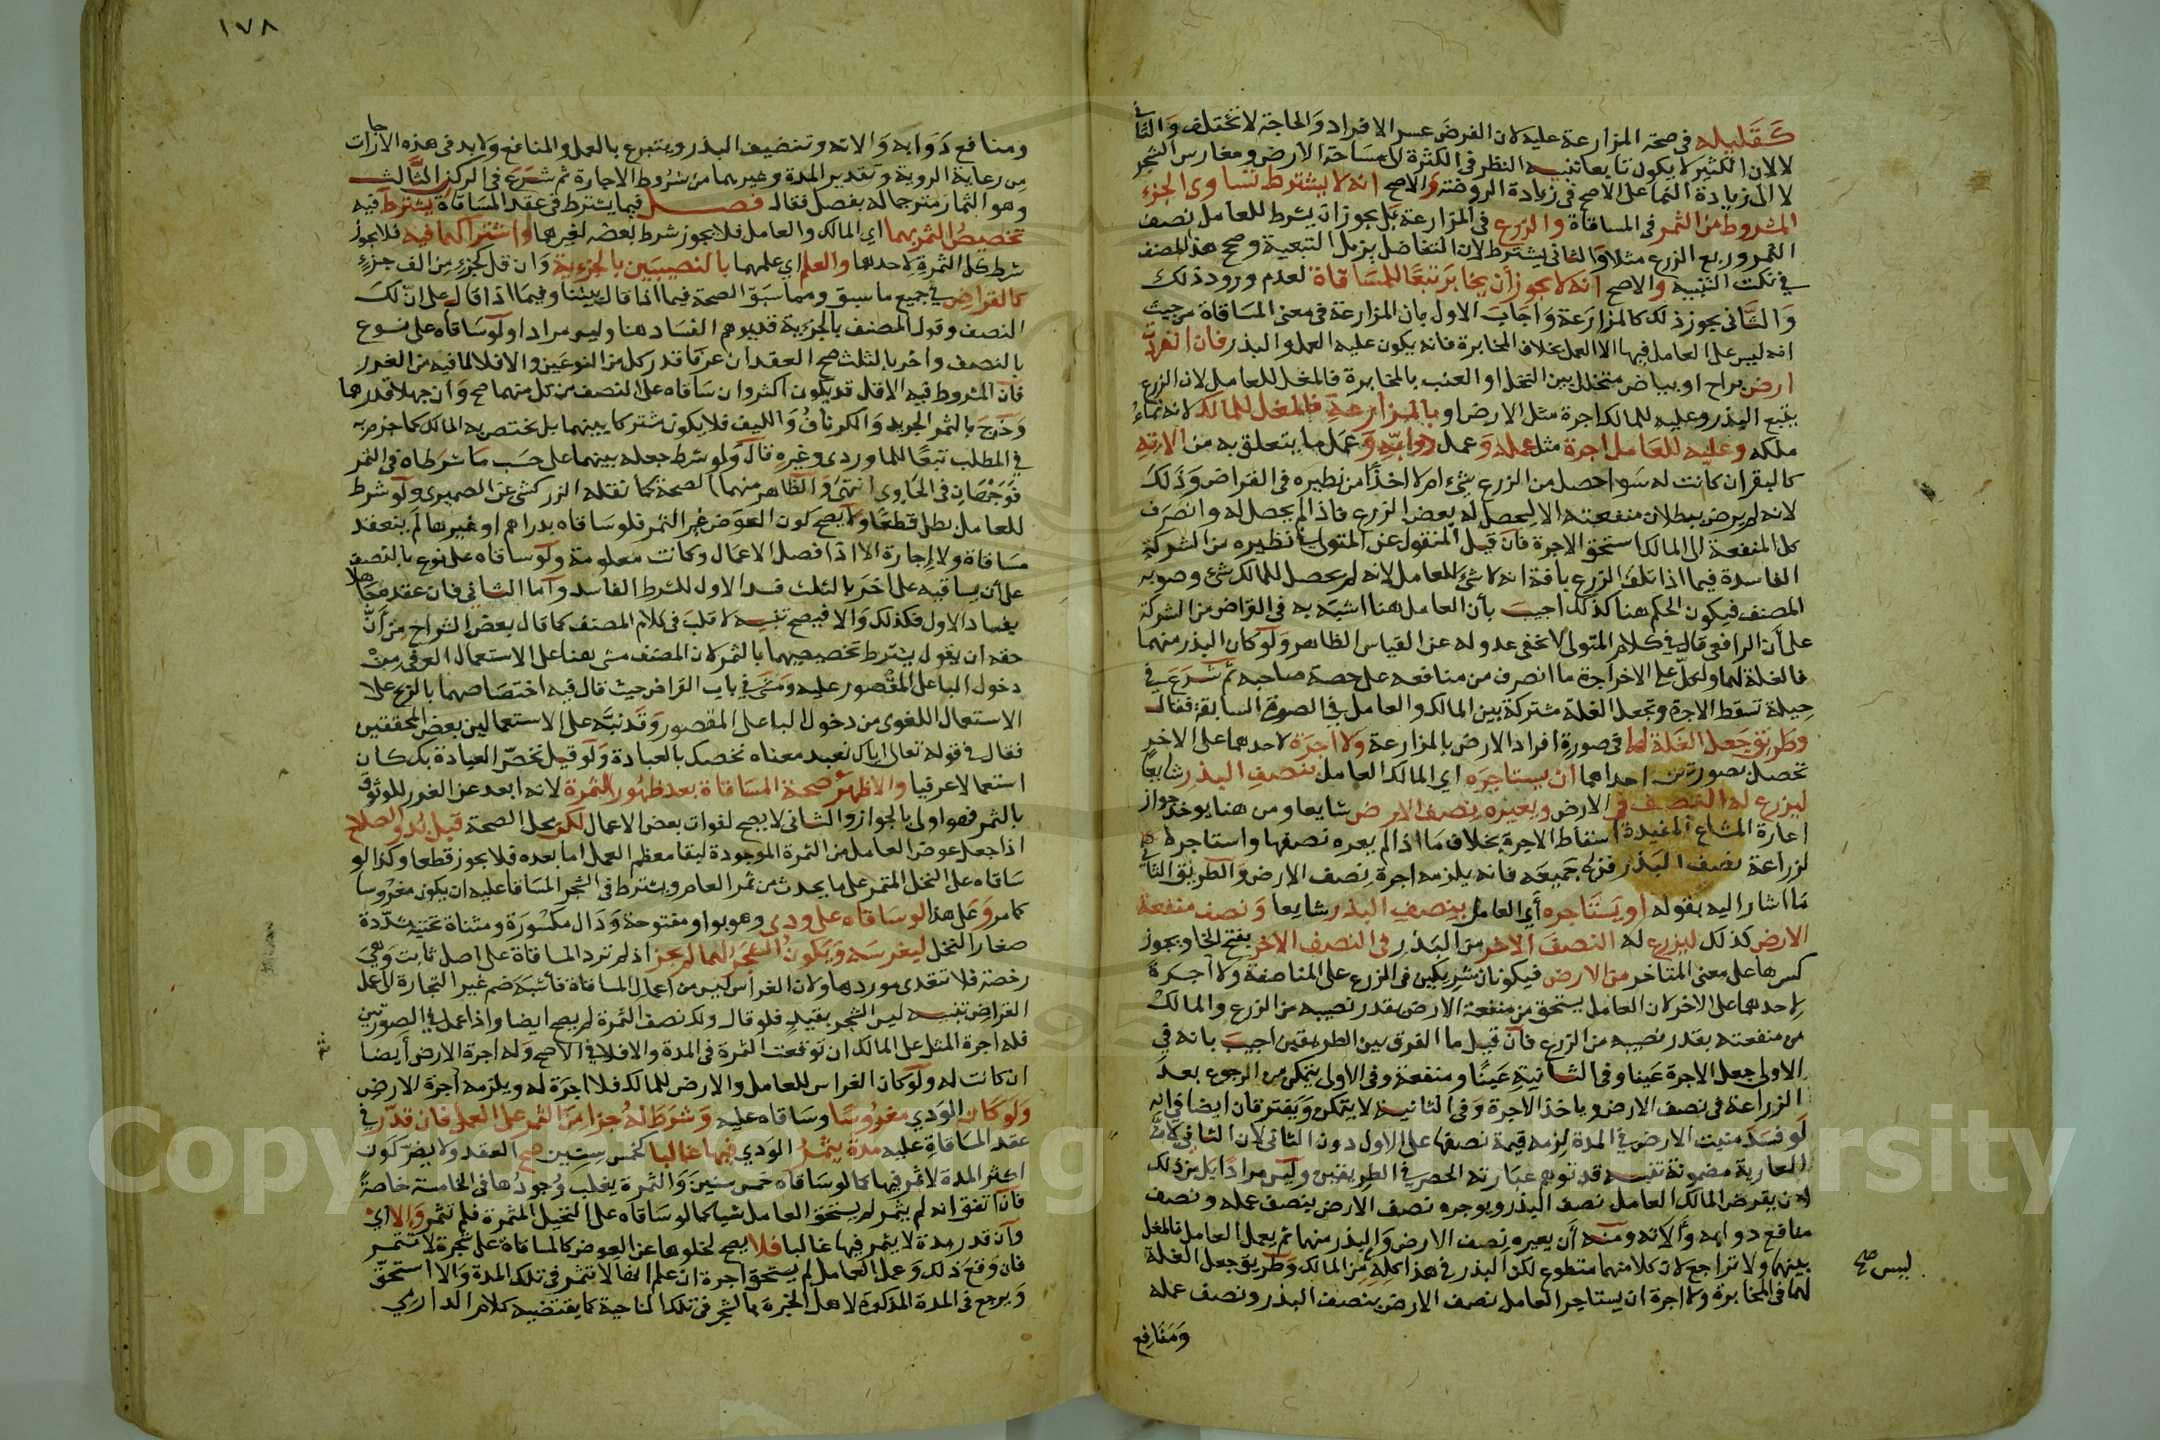 كقليله في صحة المزارعة عليه لان الغرض عسر الافراد والحاجة لا تختلف والثاني
لا لان الكثير لا يكون تابعا تنبيه النظر في الكثرة الى مساحة الارض ومغارس الشجر
لا الى زيادة النما على الاصح في زيادة الروضة والاصح انه لا يشترط تساوي الجزء
المشروط من الثمر في المساقاة والزرع في المزارعة بل يجوز ان يشرط للعامل نصف
الثمر وربع الزرع مثلا والثاني يشترط لان التفاضل يزيل التبعية وصحح هذا المصنف
في نكت التنبيه والاصح انه لا يجوز أن يخابر تبعا للمساقاة لعدم ورود ذلك
والثاني يجوز ذلك كالمزارعة واجاب الاول بان المزارعة في معنى المساقاة من حيث
انه ليس على العامل فيها الا العمل بخلاف المخابرة فانه يكون عليه العمل والبذر فان افردت
ارض براح او بياض متخلل بين النخل او العنب بالمخابرة فالمغل للعامل لان الزرع
يتبع البذر وعليه للمالك اجرة مثل الارض او بالمزارعة فالمغل للمالك لانه نماء
ملكه وعليه للعامل اجرة مثل عمله وعمل دوابه وعمل ما يتعلق به من الاته
كالبقر ان كانت له سوا حصل من الزرع شيء ام لا اخذا من نظيره في القراض وذلك
لانه لم يرض ببطلان منفعته الا ليحصل له بعض الزرع فاذا لم يحصل له وانصرف
كل المنفعة الى المالك استحق الاجرة فان قيل المنقول عن المتولي في نظيره من الشركة
الفاسدة فيما اذا تلف الزرع بافة انه لا شيء للعامل لانه لم يحصل للمالك شيء وصوبه
المصنف فيكون الحكم هنا كذلك اجيب بأن العامل هنا اشبه به في القراض من الشركة
على أن الرافعي قال في كلام المتولي لا يخفى عدوله عن القياس الظاهر ولو كان البذر منهما
فالغلة لهما ولكل على الاخر اجرة ما انصرف من منافعه على حصة صاحبه ثم شرع في
حيلة تسقط الاجرة وتجعل الغلة مشتركة بين المالك والعامل في الصورة السابقة فقال
وطريق جعل الغلة لهما في صورة افراد الارض بالمزارعة ولا اجرة لاحدهما على الاخر
تحصل بصورتين احداهما ان يستاجره اي المالك العامل بنصف البذر شايعا
ليزرع له النصف في الارض ويعيره نصف الارض شايعا ومن هنا يوخذ جواز
اعارة المشاع المفيدة اسقاط الاجرة بخلاف ما اذا لم يعره نصفها واستاجره
لزراعة نصف البذر فزرع جميعه فانه يلزمه اجرة نصف الارض والطريق الثاني
ما اشار اليه بقوله او يستاجره أي العامل بنصف البذر شايعا ونصف منفعة
الارض كذلك ليزرع له النصف الاخر من البذر في النصف الاخر بفتح الخا ويجوز
كسرها على معنى المتاخر من الارض فيكونان شريكين في الزرع على المناصفة ولا اجرة
لاحدهما على الاخر لان العامل يستحق من منفعة الارض بقدر نصيبه من الزرع والمالك
من منفعته بقدر نصيبه من الزرع فان قيل ما الفرق بين الطريقين اجيب بانه في
الاولى جعل الاجرة عينا وفي الثانية عينا ومنفعة وفي الاولى يتمكن من الرجوع بعد
الزراعة في نصف الارض وياخذ الاجرة وفي الثانية لا يتمكن ويفترقان ايضا في انه
لو فسد منبت الارض في المدة لزمه قيمة نصفها على الاول دون الثاني لان الثاني لان
العارية مضمونة تنبيه قد توهم عبارته الحصر في الطريقين وليس مرادا بل من ذلك
ان يقرض المالك العامل نصف البذر ويوجره نصف الارض بنصف عمله ونصف
منافع دوابه وآلاته ومنه أن يعيره نصف الارض والبذر منهما ثم يعمل العامل فالمغل
بينهما ولا تراجع لان كلا منهما متطوع لكن البذر في هذا كله من المالك وطريق جعل الغلة
ليس صح
لهما في المخابرة ولا اجرة ان يستاجر العامل نصف الارض بنصف البذر ونصف عمله
ومنافع
١٧٨
ومنافع دوابه والاته وتنضيف البذر ويتبرع بالعمل والمنافع ولا بد في هذه الاجارات
من رعاية الروية وتقدير المدة وغيرهما من شروط الاجارة ثم شرع في الركن الثالث
وهو الثمار مترجما له بفصل فقال فصل فيما يشترط في عقد المساقاة يشترط فيه
تخصيص الثمر بهما اي المالك والعامل فلا يجوز شرط بعضه لغيرهما واشتراكهما فيه فلا يجوز
شرط كل الثمرة لاحدهما والعلم اي علمهما بالنصيبين بالجزئية وان قل كجزء من الف جزء
كالقراض في جميع ما سبق ومما سبق الصحة فيما اذا قال بيننا وفيما اذا قال على ان لك
النصف وقول المصنف بالجزئية قد يوهم الفساد هنا وليس مرادا ولو ساقاه على نوع
بالنصف واخر بالثلث صح العقد ان عرفا قدر كل من النوعين والا فلا لما فيه من الغرر
فان المشروط فيه الاقل قد يكون اكثر وان ساقاه على النصف من كل منهما صح وان جهلا قدرهما
وخرج بالثمر الجريد والكرناف والليف فلا يكون مشتركا بينهما بل يختص به المالك كما جزم به
في المطلب تبعا للماوردي وغيره قال ولو شرط جعله بينهما على حسب ما شرطاه في الثمر
فوجهان في الحاوي انتهى والظاهر منهما الصحة كما نقله الزركشي عن الصيمري ولو شرط
للعامل بطل قطعا ولا يصح كون العوض غير الثمر فلو ساقاه بدراهم او غيرها لم ينعقد
مساقاة ولا إجارة الا اذا فصل الاعمال وكانت معلومة ولو ساقاه على نوع بالنصف
على أن يساقيه على اخر بالثلث فسد الاول للشرط الفاسد واما الثاني فان عقده جاهلا
بفساد الاول فكذلك والا فيصح تنبيه لا قلب في كلام المصنف كما قال بعض الشراح من أن
حقه ان يقول يشترط تخصيصهما بالثمر لان المصنف مشى هنا على الاستعمال العرفي من
دخول البا على المقصور عليه ومشى في باب القراض حيث قال فيه اختصاصهما بالربح على
الاستعمال اللغوي من دخول البا على المقصور وقد نبه على الاستعمالين بعض المحققين
فقال في قوله تعالى اياك نعبد معناه نخصك بالعبادة ولو قيل نخص العبادة بك كان
استعمالا عرفيا والاظهر صحة المساقاة بعد ظهور الثمرة لانه ابعد عن الغرر للوثوق
بالثمر فهو اولى بالجواز والثاني لا يصح لفوات بعض الاعمال لكن محل الصحة قبل بدو الصلاح
اذا جعل عوض العامل من الثمرة الموجودة لبقا معظم العمل اما بعده فلا يجوز قطعا وكذا لو
ساقاه على النخل المثمر على ما يحدث من ثمر العام ويشترط في الشجر المساقا عليه ان يكون مغروسا
كما مر وعلى هذا لو ساقاه على ودي وهو بواو مفتوحة ودال مكسورة ومثناة تحتية مشددة
صغار النخل ليغرسه ويكون الشجر لهما لم يجز اذ لم ترد المساقاة على اصل ثابت وهي
رخصة فلا تتعدى موردها ولان الغراس ليس من اعمال المساقاة فاشبه ضم غير التجارة الى عمل
القراض تنبيه ليس الشجر بقيد فلو قال ولك نصف الثمرة لم يصح ايضا واذا عمل في الصورتين
فله اجرة المثل على المالك ان توقعت الثمرة في المدة والا فلا في الاصح وله اجرة الارض أيضا
ان كانت له ولو كان الغراس للعامل والارض للمالك فلا اجرة له ويلزمه اجرة الارض
ولو كان الودي مغروسا وساقاه عليه وشرط له جزا من الثمر على العمل فان قدر في
عقد المساقاة عليه مدة يثمر الودي فيها غالبا كخمس سنين صح العقد ولا يضر كون
اكثر المدة لا ثمر فيها كما لو ساقاه خمس سنين والثمرة يغلب وجودها في الخامسة خاصة
فان اتفق انه لم يثمر لم يستحق العامل شيا كما لو ساقاه على النخيل المثمرة فلم تثمر والا اي
وان قدر مدة لا يثمر فيها غالبا فلا يصح لخلوها عن العوض كالمساقاة على شجرة لا تثمر
فان وقع ذلك وعمل العامل لم يستحق اجرة ان علم انها لا تثمر في تلك المدة والا استحق
ويرجع في المدة المذكورة لاهل الخبرة بالشجر في تلك الناحية كما يقتضيه كلام الدارمي